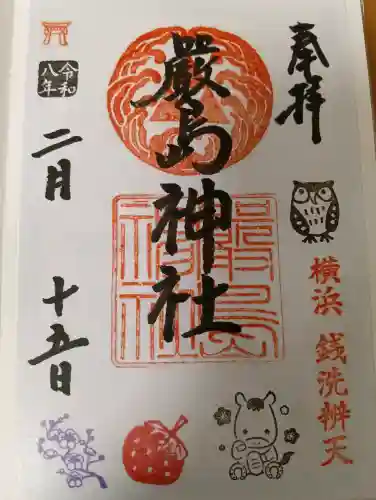 奉拝
嚴島神社
嚴島神社
横浜 銭洗辨天
令和八年
二月 十五日